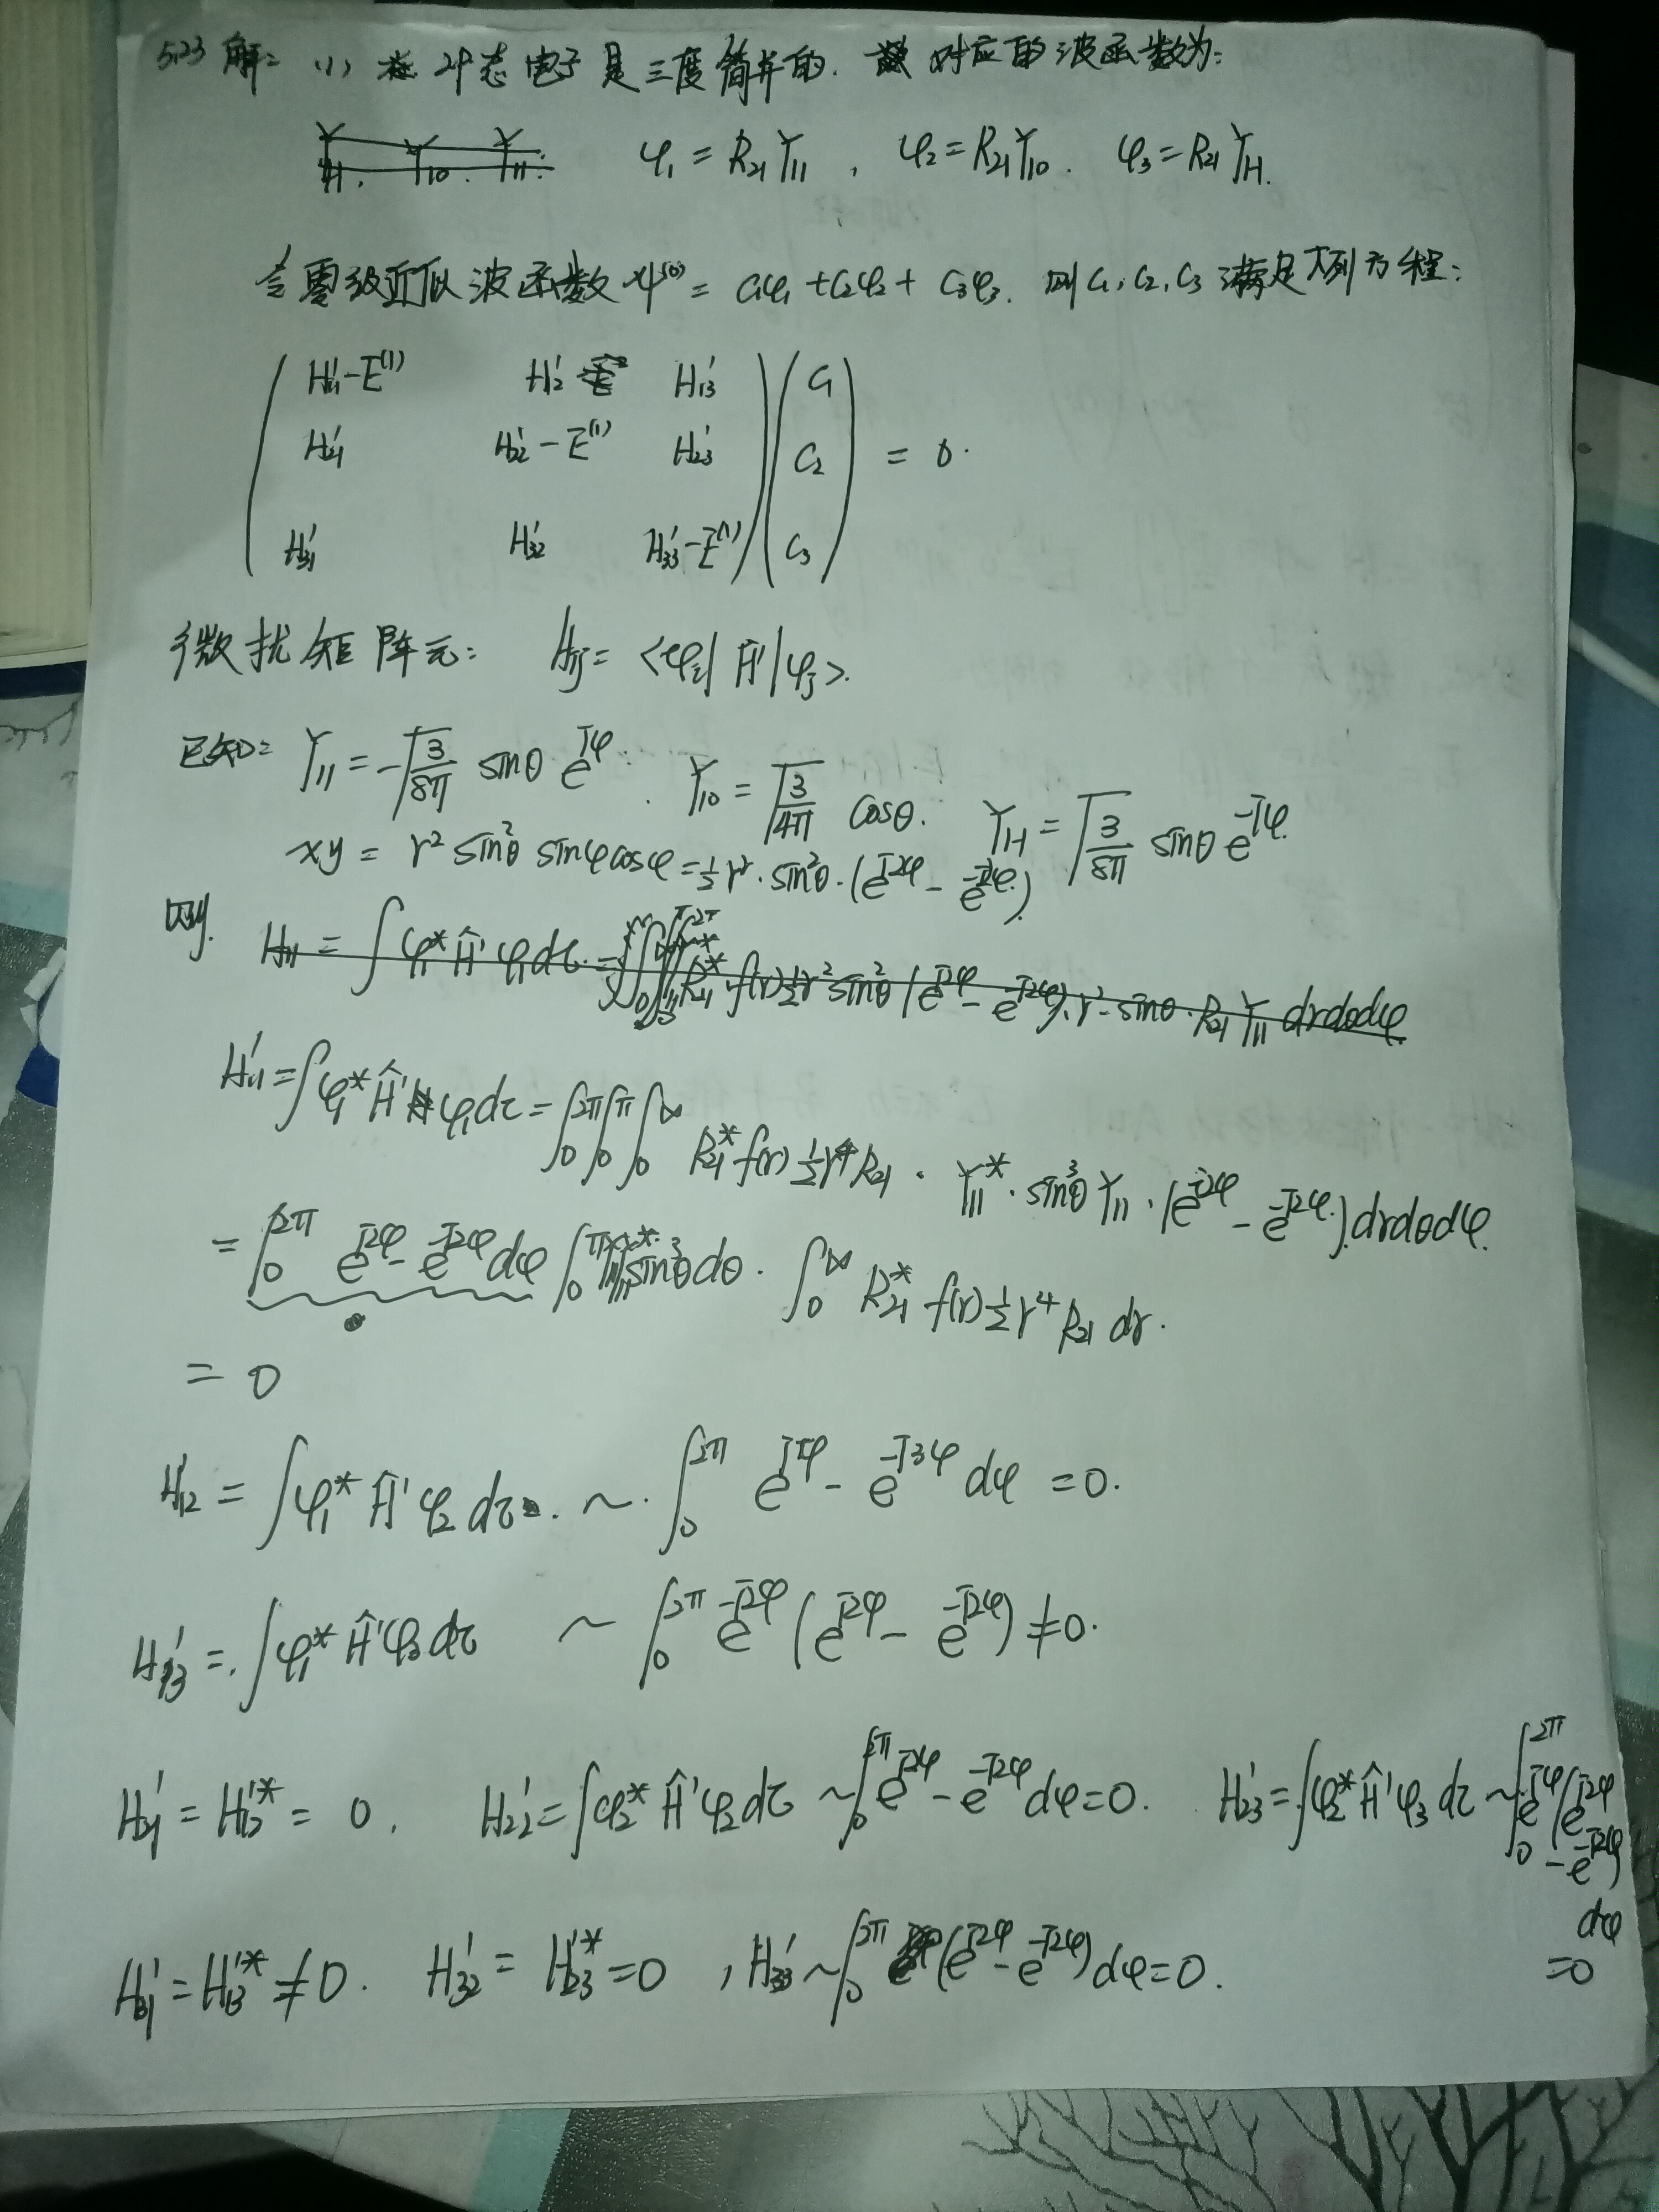 5.23 解: (1) 2P态电子是三度简并的. 对应的波函数为:
φ₁ = R₂₁Y₁₁ , φ₂ = R₂₁Y₁₀ . φ₃ = R₂₁Y₁₋₁.
令零级近似波函数 ψ⁽⁰⁾ = C₁φ₁ + C₂φ₂ + C₃φ₃. 则 C₁, C₂, C₃ 满足下列方程:
( H₁₁' - E⁽¹⁾ H₁₂' H₁₃' ) ( C₁ )
( H₂₁' H₂₂' - E⁽¹⁾ H₂₃' ) ( C₂ ) = 0.
( H₃₁' H₃₂' H₃₃' - E⁽¹⁾ ) ( C₃ )
微扰矩阵元: Hᵢⱼ = <φᵢ| Ĥ' |φⱼ>.
已知: Y₁₁ = -√(3/8π) sinθ e^{iφ}. Y₁₀ = √(3/4π) cosθ. Y₁₋₁ = √(3/8π) sinθ e^{-iφ}.
xy = r² sin²θ sinφ cosφ = ½ r² · sin²θ · (e^{i2φ} - e^{-i2φ})
则. H₁₁ = ∫ φ₁* Ĥ' φ₁ dτ = R₂₁* f(r) ½ r² sin²θ (e^{i2φ} - e^{-i2φ}) · r² sinθ · R₂₁ Y₁₁ dr dθ dφ
H₁₁' = ∫ φ₁* Ĥ' φ₁ dτ = ∫₀^{2π} ∫₀^{π} ∫₀^{∞} R₂₁* f(r) ½ r⁴ R₂₁ · Y₁₁* · sin³θ Y₁₁ · (e^{i2φ} - e^{-i2φ}) dr dθ dφ.
= ∫₀^{2π} e^{i2φ} - e^{-i2φ} dφ ∫₀^{π} sin³θ dθ · ∫₀^{∞} R₂₁* f(r) ½ r⁴ R₂₁ dr.
= 0
H₁₂' = ∫ φ₁* Ĥ' φ₂ dτ. ~ ∫₀^{2π} e^{iφ} - e^{-i3φ} dφ = 0.
H₁₃' = ∫ φ₁* Ĥ' φ₃ dτ ~ ∫₀^{2π} e^{-i2φ} (e^{i2φ} - e^{-i2φ}) ≠ 0.
H₂₁' = H₁₂'* = 0 . H₂₂' = ∫ φ₂* Ĥ' φ₂ dτ ~ ∫₀^{2π} e^{i2φ} - e^{-i2φ} dφ = 0. H₂₃' = ∫ φ₂* Ĥ' φ₃ dτ ~ ∫₀^{2π} e^{-iφ} (e^{i2φ} - e^{-i2φ}) dφ = 0
H₃₁' = H₁₃'* ≠ 0. H₃₂' = H₂₃'* = 0 , H₃₃' ~ ∫₀^{2π} (e^{i2φ} - e^{-i2φ}) dφ = 0.